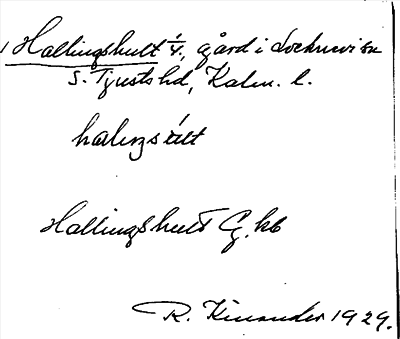 Hallingshult 1/4, gård i Lockneviss
S. Tjusts hd, Kalm. l.
Hallingshult G. kb
R. Kinander 1929.